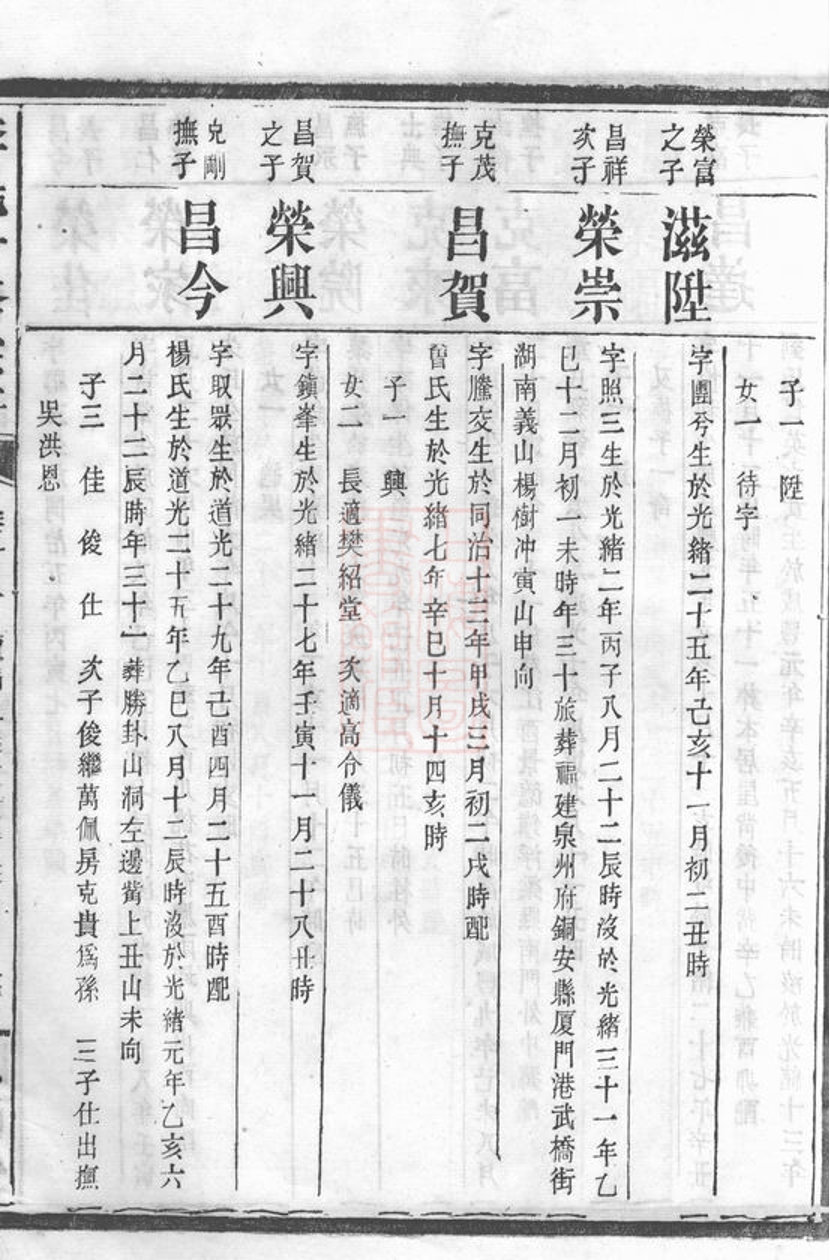 子一 陞
女一 待字
榮富
之子
滋陞
字團兮生於光緒二十五年己亥十一月初二丑時
昌祥
次子
榮崇
字照三生於光緒二年丙子八月二十二辰時沒於光緒三十一年乙
巳十二月初一未時年三十旅葬福建泉州府銅安縣厦門港武橋街
湖南義山楊樹冲寅山申向
克茂
撫子
昌賀
字騰交生於同治十三年甲戌三月初二戌時配
曾氏生於光緒七年辛巳十月十四亥時
子一 興
女二 長適樊紹堂 次適高令儀
昌賀
之子
榮興
字鎮峯生於光緒二十七年壬寅十一月二十八丑時
克剛
撫子
昌今
字取眾生於道光二十九年己酉四月二十五酉時配
楊氏生於道光二十五年乙巳八月十二辰時沒於光緒元年乙亥六
月二十二辰時年三十一葬勝卦山洞左邊嘴上丑山未向
子三 佳 俊 仕 次子俊繼萬佩房克貴爲孫 三子仕出撫
吳洪恩